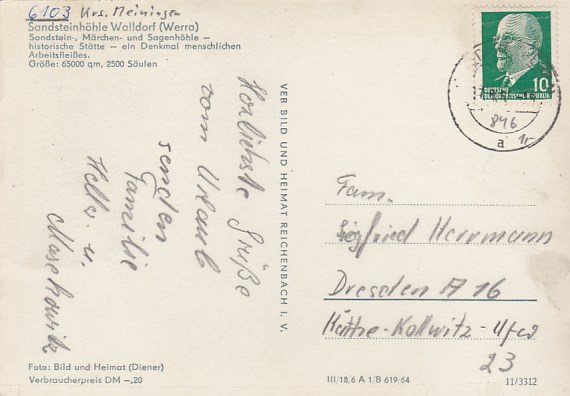 6103 Krs. Meiningen
Sandsteinhöhle Walldorf (Werra)
Sandstein-, Märchen- und Sagenhöhle —
historische Stätte — ein Denkmal menschlichen
Arbeitsfleißes.
Größe: 65000 qm, 2500 Säulen
Herzlichste Grüße
vom Urlaub
senden
Familie
Helke u.
VEB BILD UND HEIMAT REICHENBACH I. V.
10
DEUTSCHE
DEMOKRATISCHE REPUBLIK
846
a
Fam.
Siegfried Herrmann
Dresden A 16
Käthe-Kollwitz-Ufer
23
Foto: Bild und Heimat (Diener)
Verbraucherpreis DM -,20
III/18/6 A 1/B 619/64
11/3312